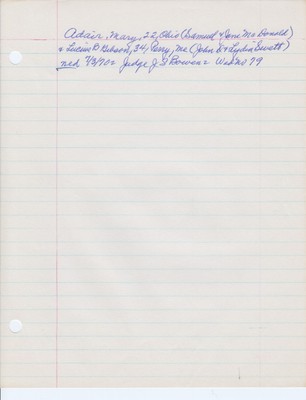 Adair, Mary, 22, Ohio (Samuel & Jane McDonald)
& Lucian B Gibson, 34, Perry, Me (John D & Lydia Sevett)
med 7/3/70 = Judge J S Bowen = Wed No 79